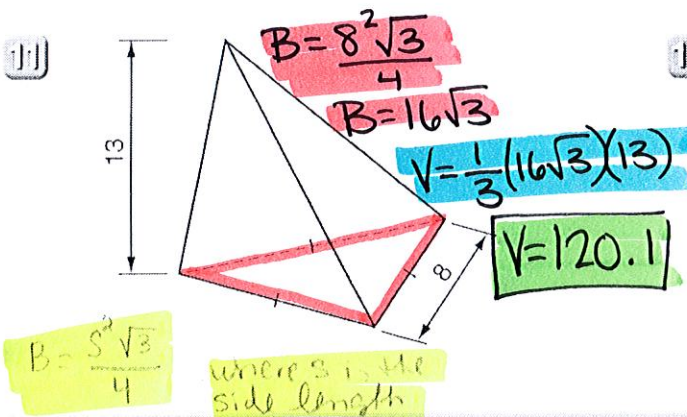 11
1
B = 8²√3
4
B = 16√3
13
V = 1/3 (16√3)(13)
8
V = 120.1
B = S²√3
4
where s is the
side length